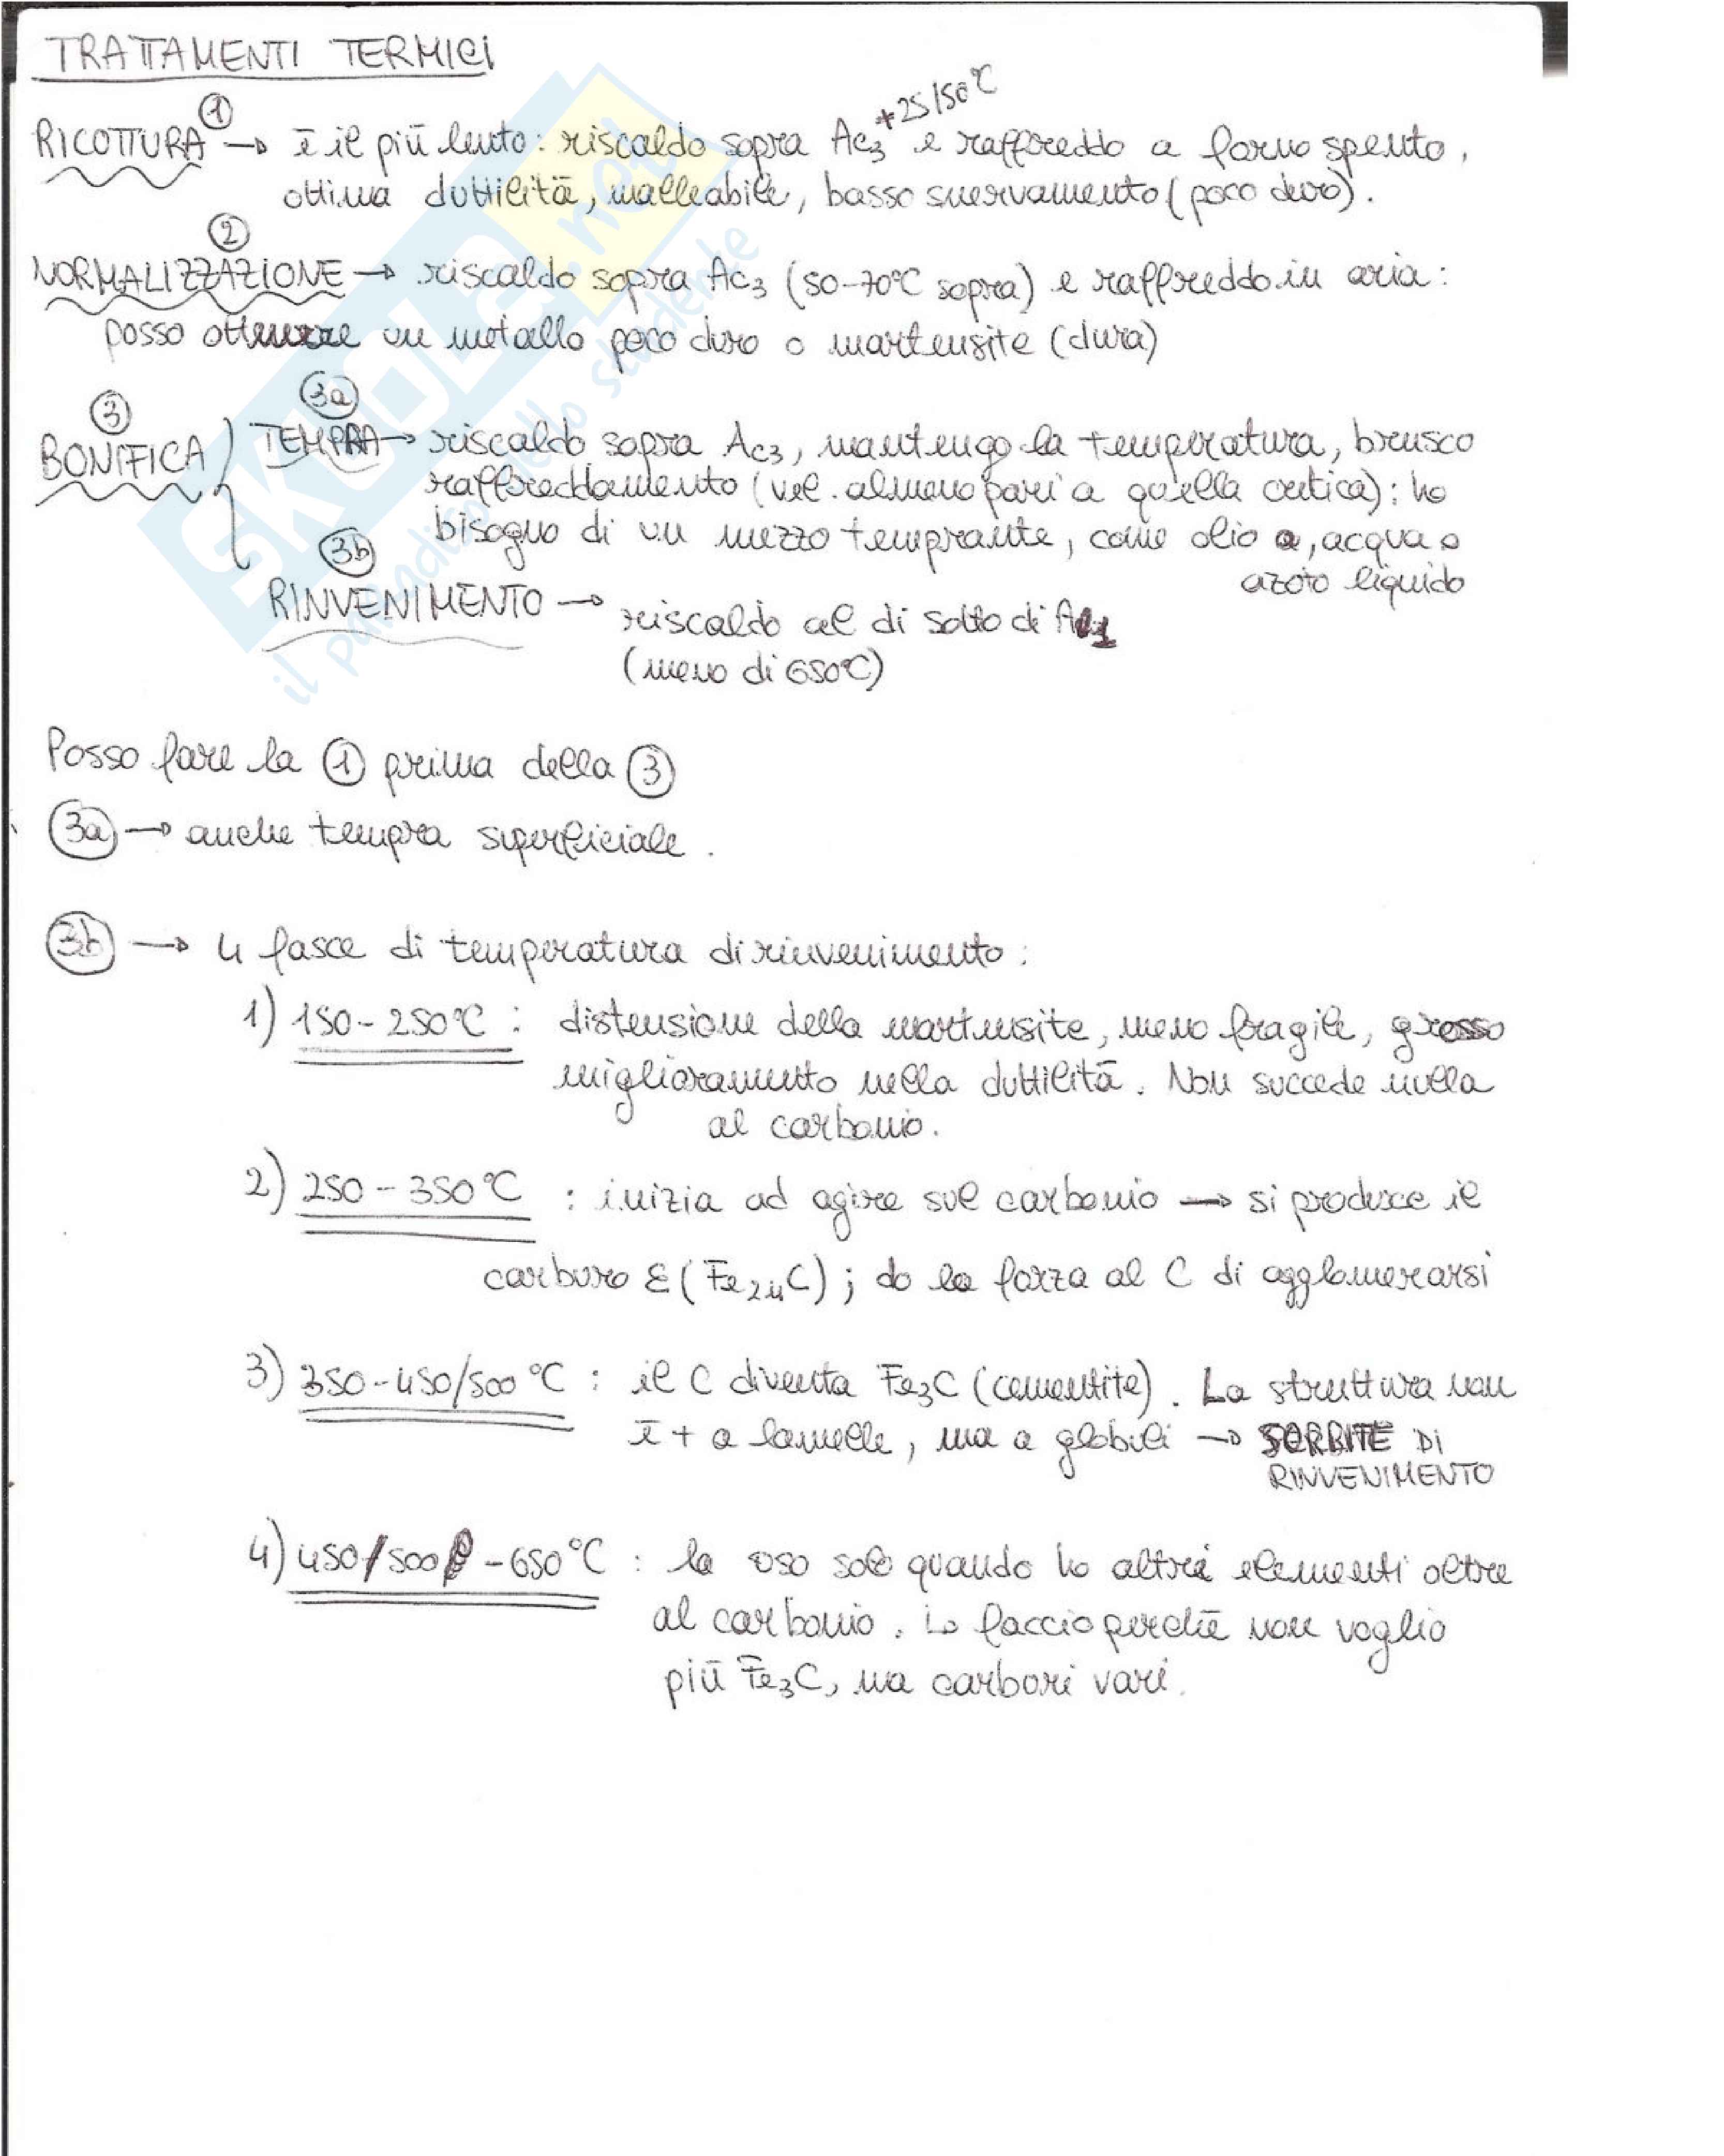 TRATTAMENTI TERMICI
① +25/50°C
RICOTTURA → è il più lento: riscaldo sopra Ac₃ e raffreddo a forno spento,
ottima duttilità, malleabile, basso snervamento (poco duro).
②
NORMALIZZAZIONE → riscaldo sopra Ac₃ (50-70°C sopra) e raffreddo in aria:
posso ottenere un metallo poco duro o martensite (dura)
③ 3a
BONIFICA TEMPRA → riscaldo sopra Ac₃, mantengo la temperatura, brusco
raffreddamento (vel. almeno pari a quella critica); ho
bisogno di un mezzo temprante, come olio, acqua o
azoto liquido
3b
RINVENIMENTO → riscaldo al di sotto di A₁
(meno di 650°C)
Posso fare la ① prima della ③
3a → anche tempra superficiale.
3b → 4 fasce di temperatura di rinvenimento:
1) 150-250°C: distensione della martensite, meno fragile, grosso
miglioramento nella duttilità. Non succede nulla
al carbonio.
2) 250-350°C: inizia ad agire sul carbonio → si produce il
carburo ε (Fe₂₄C); do la forza al C di agglomerarsi
3) 350-450/500°C: il C diventa Fe₃C (cementite). La struttura non
è + a lamelle, ma a globuli → SORBITE DI
RINVENIMENTO
4) 450/500-650°C: la uso solo quando ho altri elementi oltre
al carbonio. Lo faccio perchè non voglio
più Fe₃C, ma carburi vari.
SKUOLA.net
il paradiso dello studente